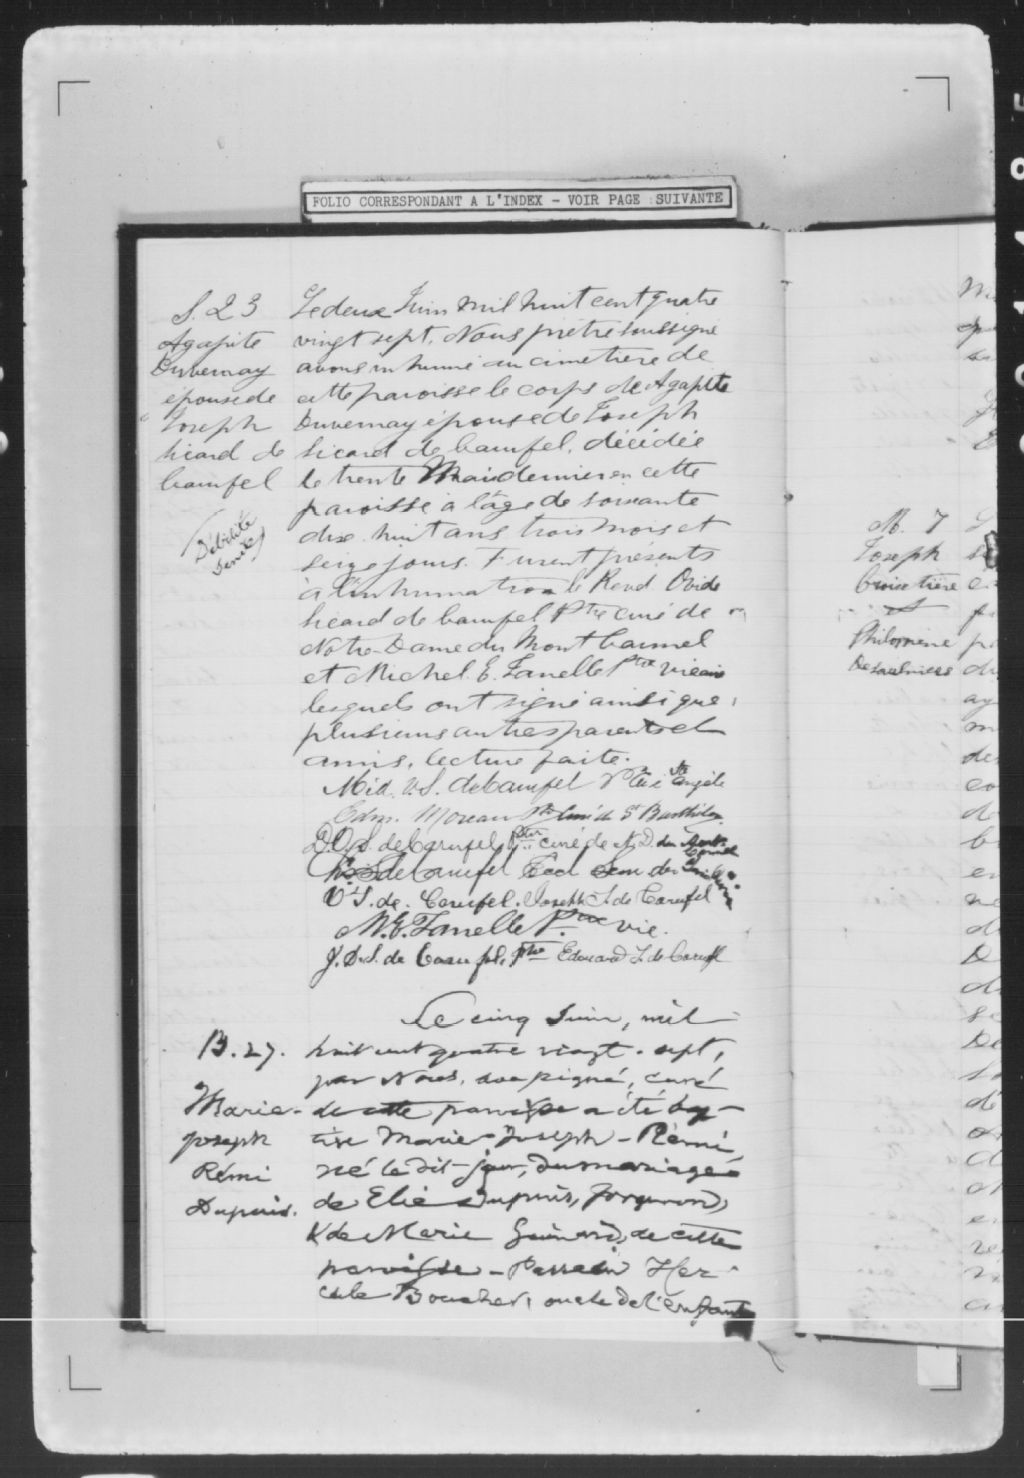 FOLIO CORRESPONDANT A L'INDEX - VOIR PAGE SUIVANTE
S. 23
Agapite
Duvernay
épouse de
Joseph
Sicard de
Carufel
(Débilité
Senile)
Le deux Juin mil huit cent quatre
vingt sept, Nous prêtre soussigné
avons inhumé au cimetière de
cette paroisse le corps de Agapite
Duvernay épouse de Joseph
Sicard de Carufel, décédée
le trente Mai dernier en cette
paroisse à l'âge de soixante
dix huit ans trois mois et
seize jours. Furent présents
à l'inhumation le Revd Ovide
Sicard de Carufel Ptre curé de
Notre-Dame du Mont Carmel
et Michel E. Janelle Ptre vicaire
lesquels ont signé ainsi que
plusieurs autres parents et
amis, lecture faite.
V.S. deCarufel Ptre Ste Angèle
Edm. Moreau Ptre Curé de St Barthélemy
D.O.S. de Carufel Ptre curé de N. D. du Mont Carmel
S de Carufel Eccl Sem. des
V S. de Carufel. Joseph S. de Carufel
M. E. Janelle Ptre vic.
J. D. S. de Carufel, Ptre Edouard S. de Carufel
B. 27.
Marie-
Joseph
Rémi
Dupuis.
Le cinq Juin, mil
huit cent quatre vingt-sept,
par Nous, soussigné, curé
de cette paroisse a été bap-
tisé Marie-Joseph-Rémi,
né le dit jour, du mariage
de Elie Dupuis, forgeron,
& de Marie de cette
paroisse - Parrain Her-
cule Boucher, oncle de l'enfant
M. 7
Joseph
et
Philomène
Desaulniers